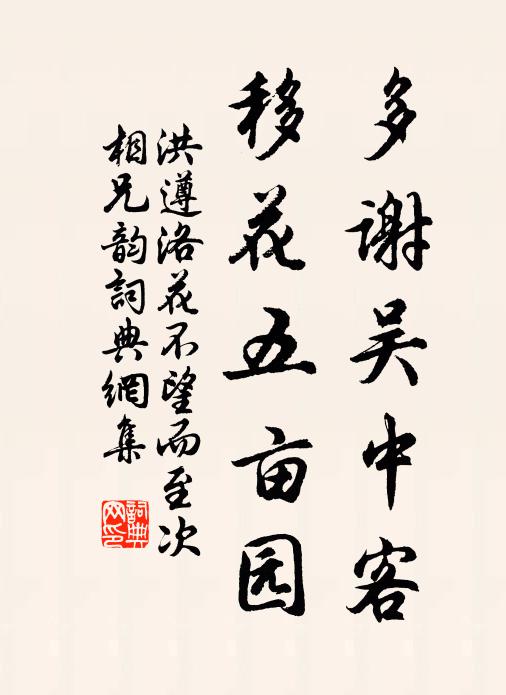 多谢吴中客
移花五亩园
洪遵洛花不望而至次
相兄韵詞典網集
詞典
网印